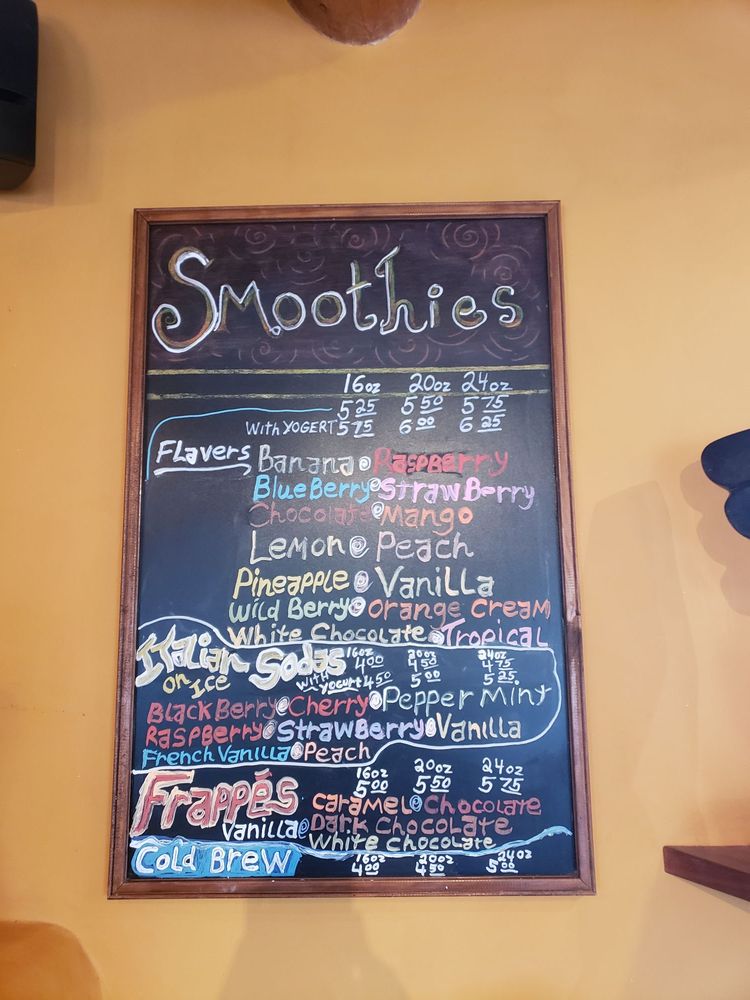 Smoothies
16oz 20oz 24oz
5 25 5 50 5 75
With YOGERT 5 75 6 00 6 25
Flavers Banana Raspberry
BlueBerry StrawBerry
Chocolate Mango
Lemon Peach
Pineapple Vanilla
Wild Berry Orange Cream
White Chocolate Tropical
Italian Sodas 16oz 20oz 24oz
4 00 4 50 4 75
on Ice with yogurt 4 50 5 00 5 25
BlackBerry Cherry Pepper Mint
Raspberry StrawBerry Vanilla
French Vanilla Peach
Frappés 16oz 20oz 24oz
5 00 5 50 5 75
Caramel Chocolate
Vanilla Dark Chocolate
White Chocolate
Cold Brew 16oz 20oz 24oz
4 00 4 50 5 00